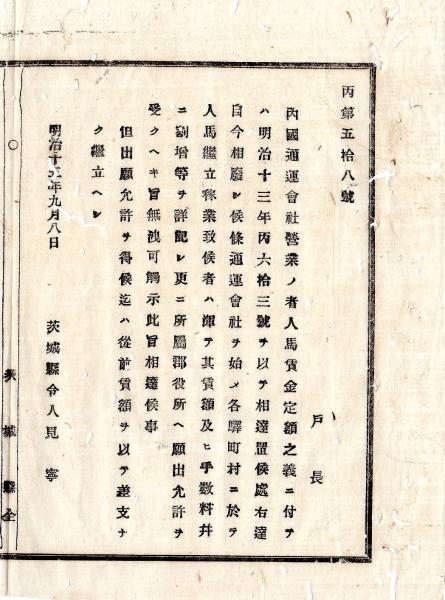 丙第五拾八號
戸長
內國通運會社營業ノ者人馬賃金定額之義ニ付テ
ハ明治十三年丙六拾三號ヲ以テ相達置候處右達
自今相廢シ候條通運會社ヲ始メ各驛町村ニ於テ
人馬繼立稼業致候者ハ渾テ其賃額及ヒ手数料幷
ニ割增等ヲ詳記シ更ニ所屬郡役所ヘ願出允許ヲ
受クヘキ旨無洩可觸示此旨相達候事
但出願允許ヲ得候迄ハ從前賃額ヲ以テ差支ナ
ク繼立ヘシ
明治十 年九月八日
茨城縣令人見寧
茨城縣